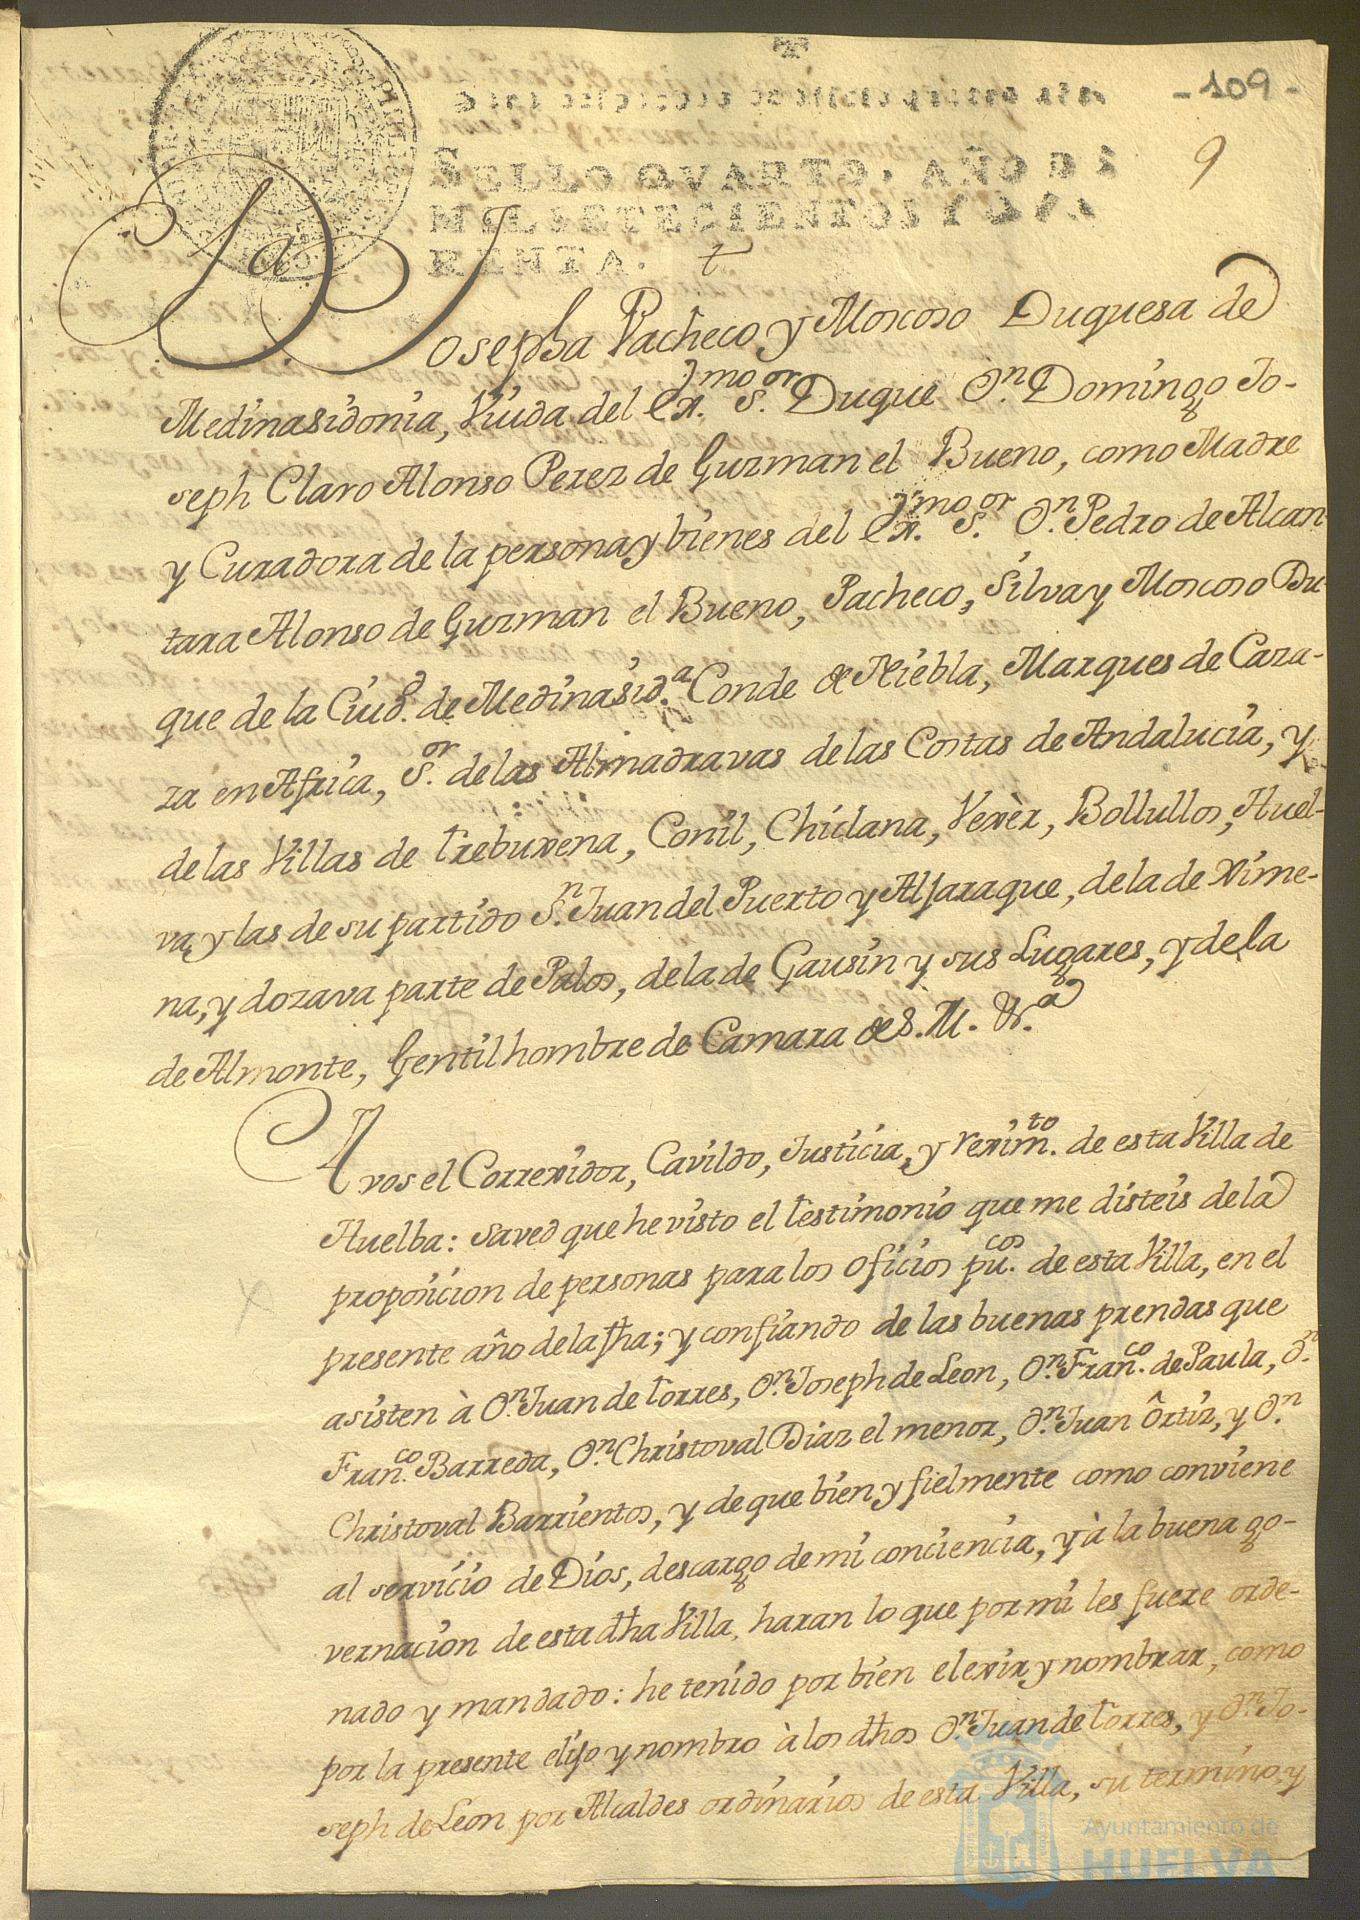 -109-
9
SELLO QVARTO, AÑO DE
MIL SETECIENTOS Y QVA
RENTA.
Da Josepha Pacheco y Moscoso Duquesa de
Medinasidonia, Viuda del Ex.mo S.or Duque Dn. Domingo Jo-
seph Claro Alonso Perez de Guzman el Bueno, como Madre
y Curadora de la persona y bienes del Ex.mo S.or Dn. Pedro de Alcan
tara Alonso de Guzman el Bueno, Pacheco, Silva y Moscoso Du
que de la Ciud. de Medinasid.a Conde de Niebla, Marques de Caza-
za en Africa, S.or de las Almadravas de las Costas de Andalucia, y
de las Villas de Trebuxena, Conil, Chiclana, Vexèr, Bollullos, Huel-
va, y las de su partido Sn. Juan del Puerto y Aljaraque, de la de Xime-
na, y dozava parte de Palos, de la de Gausin y sus Lugares, y de la
de Almonte, Gentilhombre de Camara de S. M. &.a
A vos el Correxidor, Cavildo, Justicia, y reximto. de esta Villa de
Huelba: saved que he visto el testimonio que me disteis de la
proposicion de personas para los oficios pucos. de esta Villa, en el
presente año de la fha; y confiando de las buenas prendas que
asisten à Dn. Juan de Torres, Dn. Joseph de Leon, Dn. Franco. de Paula, Dn.
Franco. Barreda, Dn. Christoval Diaz el menor, Dn. Juan Ôrtiz, y Dn.
Christoval Barrientos, y de que bien y fielmente como conviene
al servicio de Dios, descargo de mi conciencia, y à la buena go-
vernacion de esta dha Villa, haran lo que por mi les fuere orde-
nado y mandado: he tenido por bien elexir y nombrar, como
por la presente elijo y nombro à los dhos Dn. Juan de Torres, y Dn. Jo-
seph de Leon por Alcaldes ordinarios de esta Villa, su termino, y
Ayuntamiento de
HUELVA